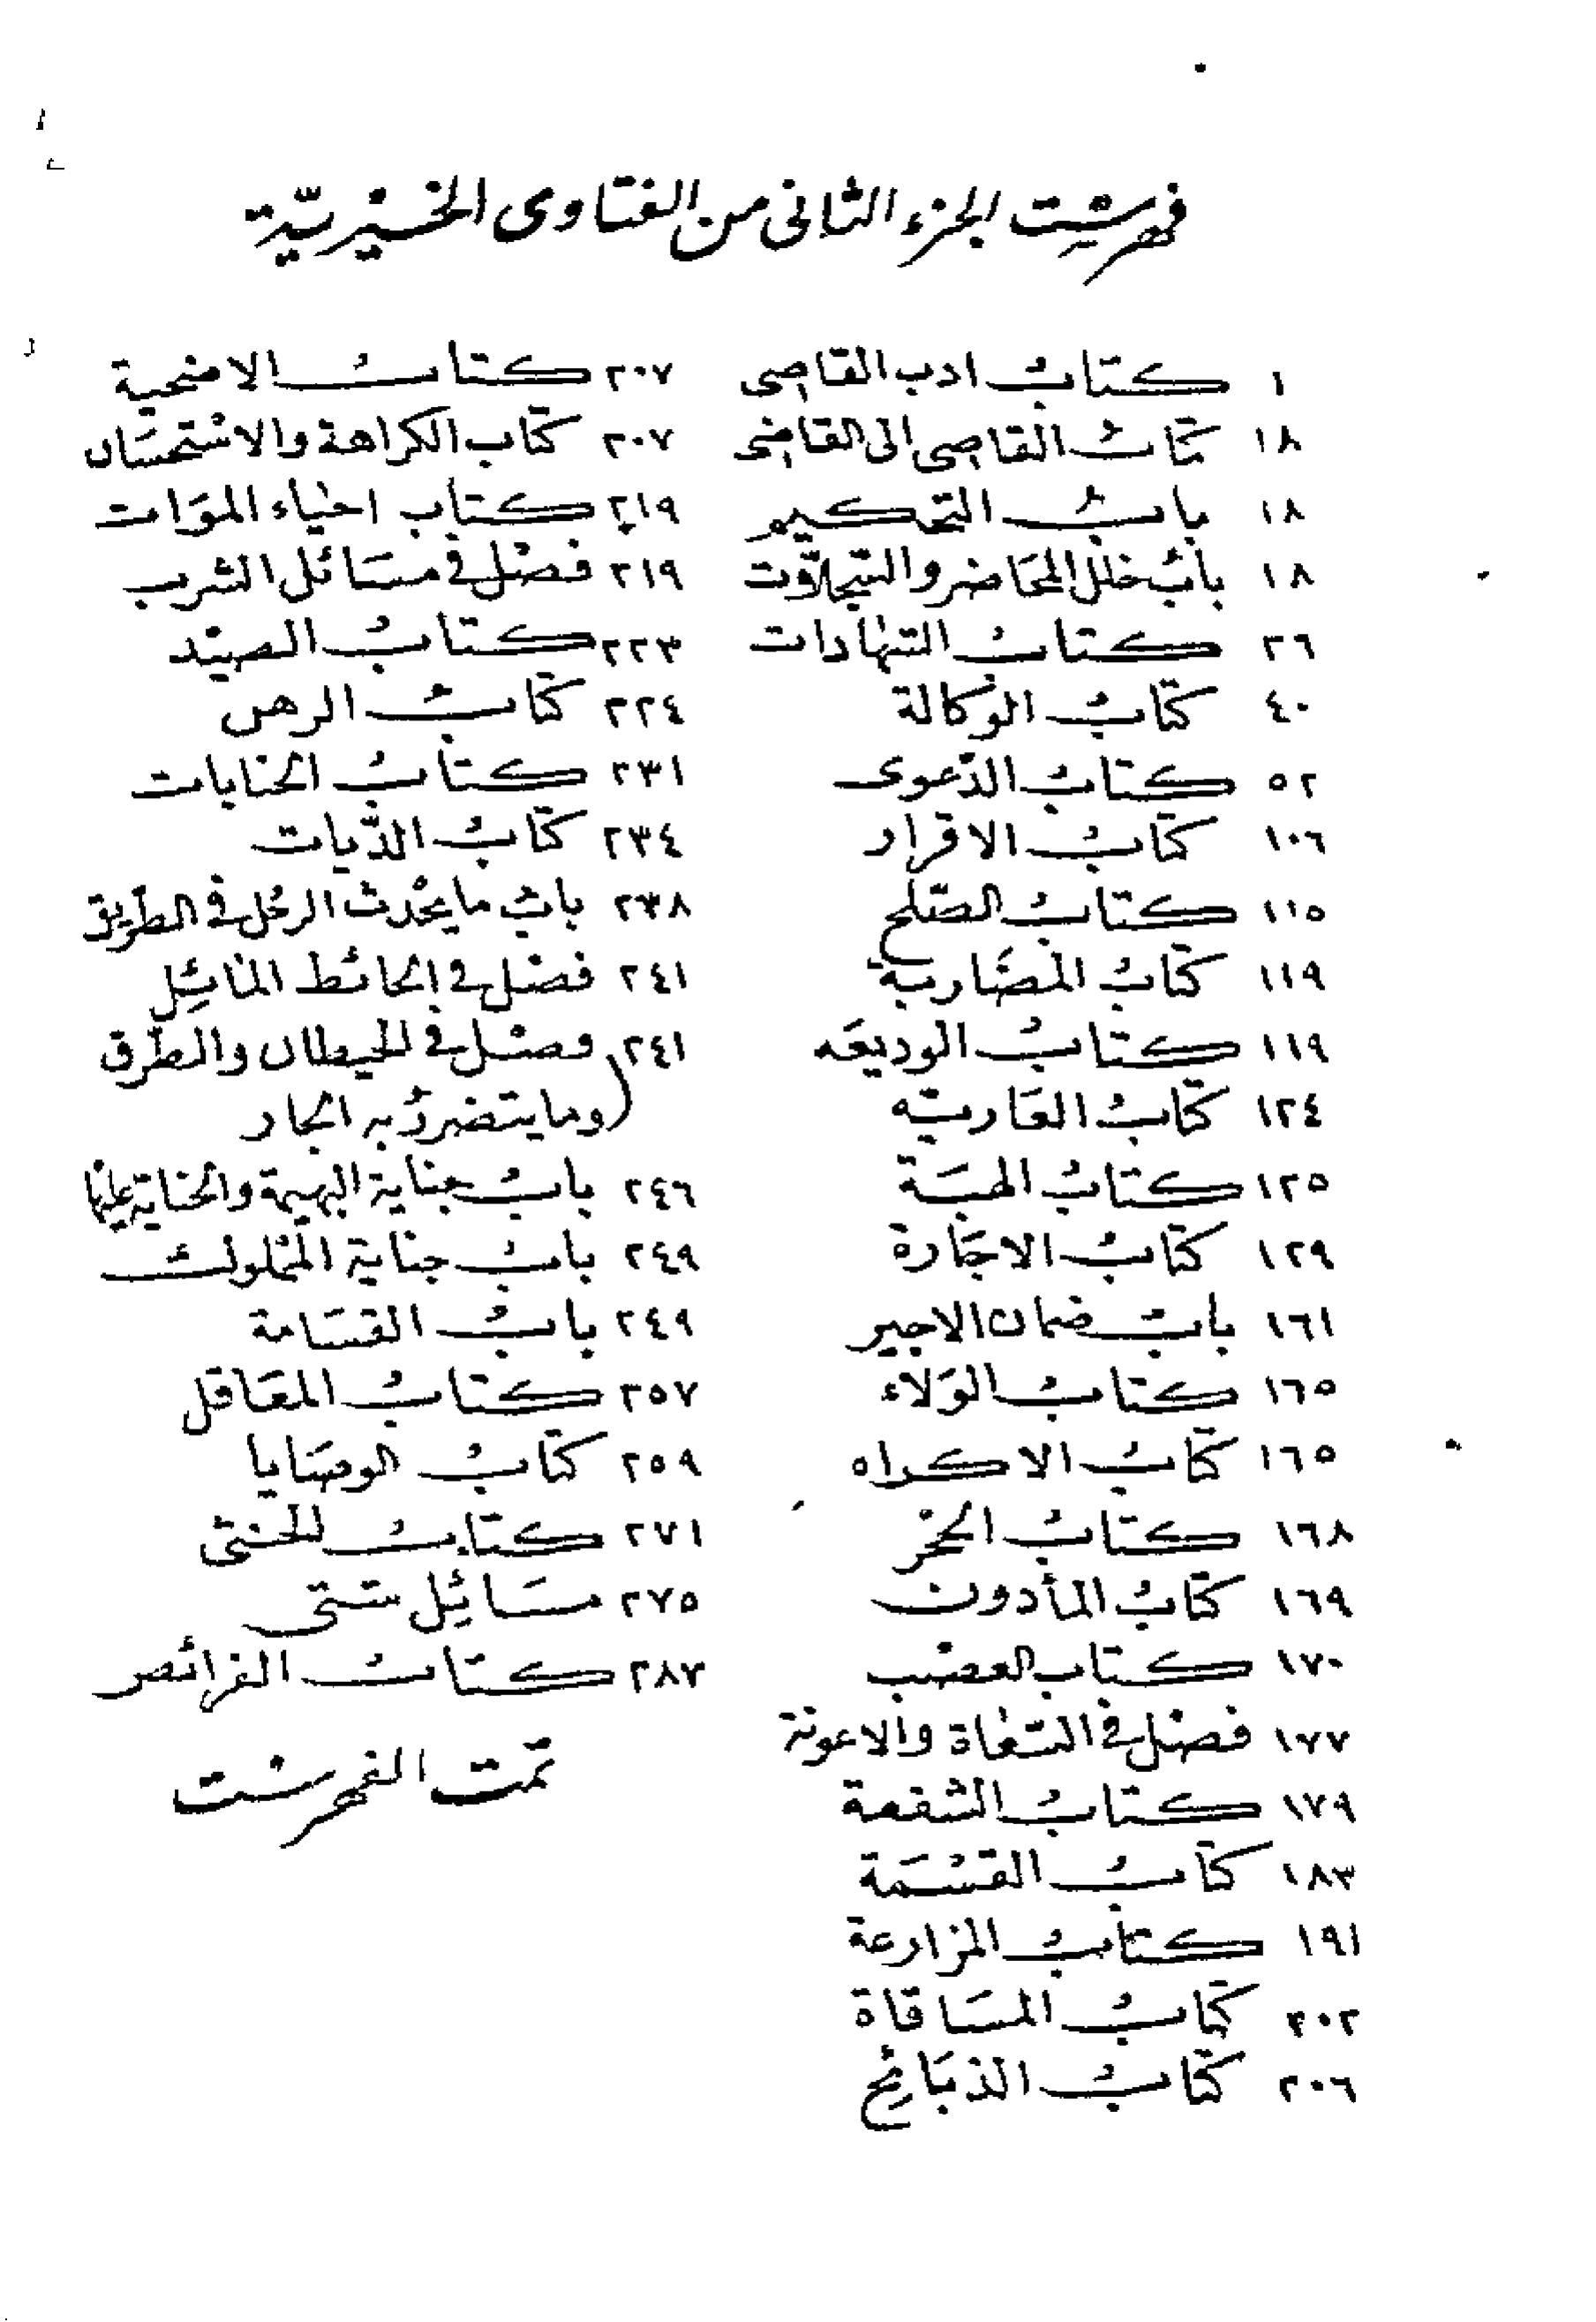 فهرست الجزء الثانى من الفتاوى الخيرية
١ كتاب ادب القاضى
١٨ كتاب القاضى الى القاضى
١٨ باب التحكيم
١٨ باب خلل المحاضر والسجلات
٢٦ كتاب الشهادات
٤٠ كتاب الوكالة
٥٢ كتاب الدعوى
١٠٦ كتاب الاقرار
١١٥ كتاب الصلح
١١٩ كتاب المضاربة
١١٩ كتاب الوديعه
١٢٤ كتاب العاريه
١٢٥ كتاب الهبة
١٢٩ كتاب الاجارة
١٦١ باب ضمان الاجير
١٦٥ كتاب الولاء
١٦٥ كتاب الاكراه
١٦٨ كتاب الحجر
١٦٩ كتاب المأذون
١٧٠ كتاب الغصب
١٧٧ فصل فى السعاة والاعونة
١٧٩ كتاب الشفعة
١٨٣ كتاب القسمة
١٩١ كتاب المزارعة
٢٠٢ كتاب المساقاة
٢٠٦ كتاب الذبائح
٢٠٧ كتاب الاضحية
٢٠٧ كتاب الكراهة والاستحسان
٢١٩ كتاب احياء الموات
٢١٩ فصل فى مسائل الشرب
٢٢٣ كتاب الصيد
٢٢٤ كتاب الرهن
٢٣١ كتاب الجنايات
٢٣٤ كتاب الديات
٢٣٨ باب ما يحدث الرجل فى الطريق
٢٤١ فصل فى الحائط المائل
٢٤١ فصل فى الحيطان والطرق
(وما يتضرر به الجار
٢٤٦ باب جناية البهيمة والجناية عليها
٢٤٩ باب جناية المملوك
٢٤٩ باب القسامة
٢٥٧ كتاب المعاقل
٢٥٩ كتاب الوصايا
٢٧١ كتاب الخنثى
٢٧٥ مسائل شتى
٢٨٧ كتاب الفرائض
تمت الفهرست